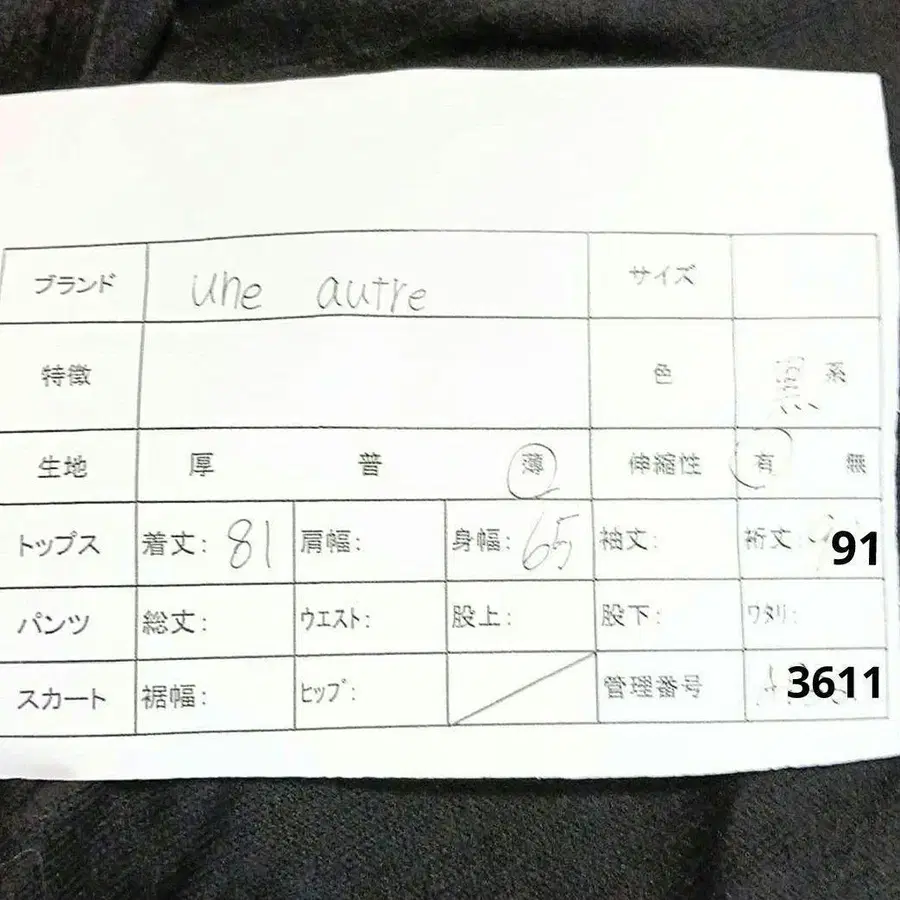 ブランド une autre サイズ
特徴 色 黒 系
生地 厚 普 薄 伸縮性 有 無
トップス 着丈: 81 肩幅: 身幅: 65 袖丈: 裄丈 91
パンツ 総丈: ウエスト: 股上: 股下: ワタリ:
スカート 裾幅: ヒップ: 管理番号 3611